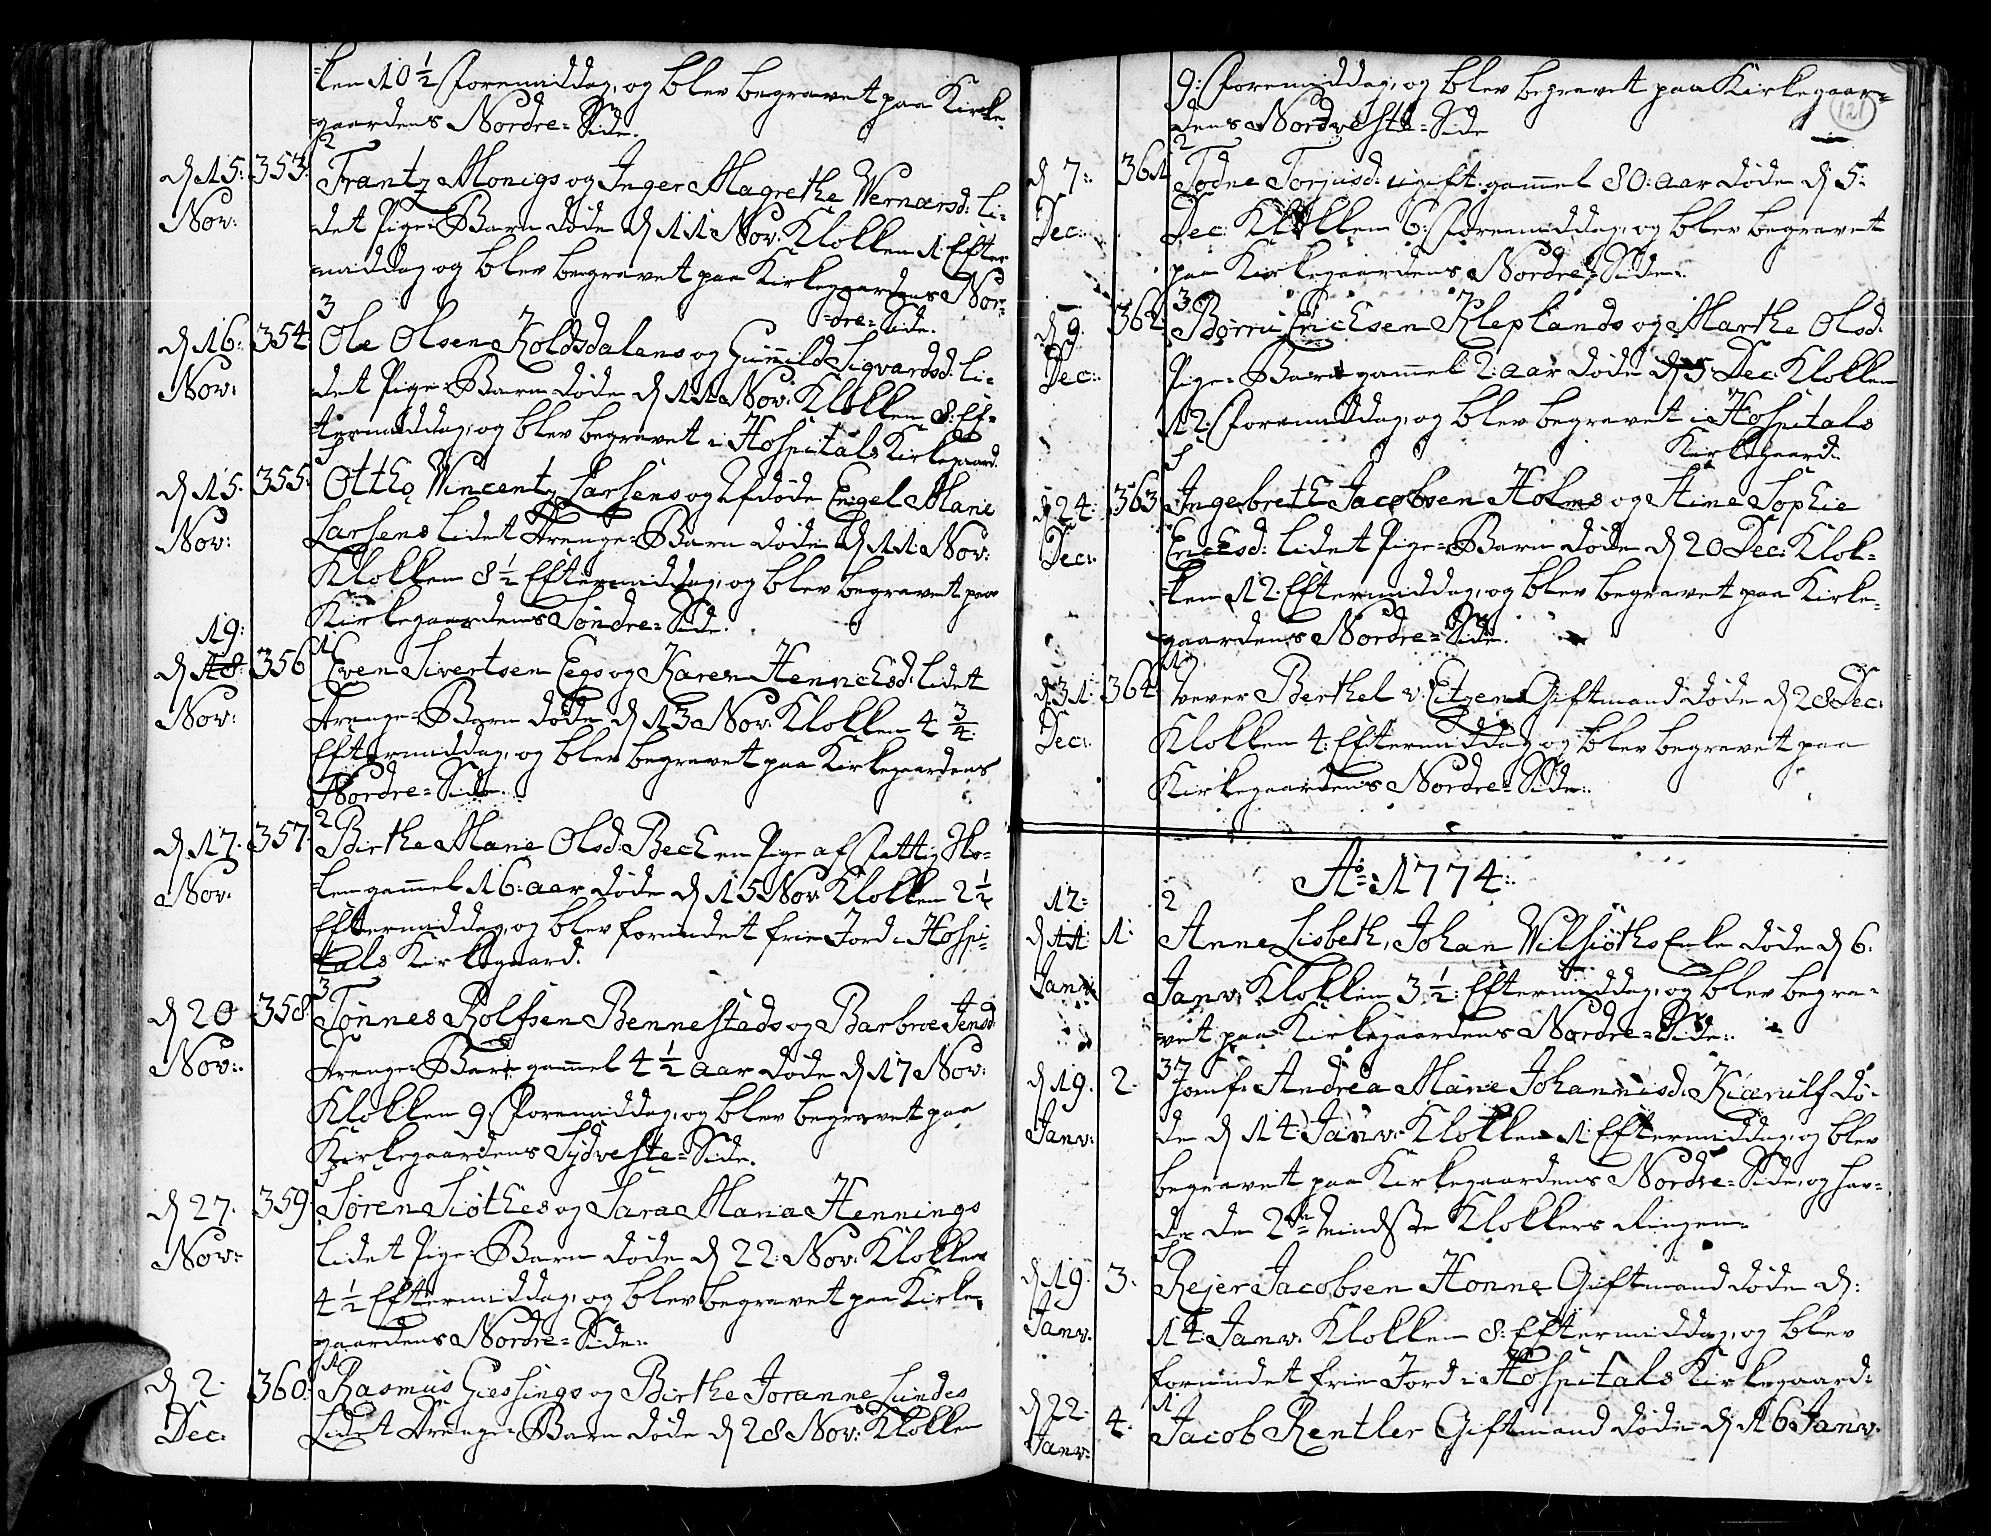 ken 10 1/2 Formiddag, og blev begravet paa Kirke-
gaardens Nordre-Side.
2
d 15: 353. Frantz Monigs og Inger Magrethe Wernersd: li-
Nov: det Pige-Barn døde d 11 Nov: Klokken 1 Efter
middag og blev begravet paa Kirkegaardens Nor-
dre-Side.
3
d 16: 354. Ole Olsen Koldsdalens og Gunnild Sigvardsd: li-
Nov: det Pige-Barn døde d 11 Nov: Klokken 8: Ef-
termiddag, og blev begravet i Hospitals Kirkegaard.
d 15. 355: Otthe Wincentz Larsens og Afdøde Engel Marie
Nov: Larsens lidet Drenge-Barn døde d 11 Nov:
Klokken 8 1/2 Eftermiddag, og blev begravet paa
Kirkegaardens Søndre-Side.
19: 1
d 18: 356 Even Sivertsen Eegs og Karen Henrichsd: lidet
Nov: Drenge-Barn døde d 13 Nov: Klokken 4 3/4
Eftermiddag, og blev begravet paa Kirkegaardens
Nordre-Side.
2
d 17. 357 Birthe Marie Olsd: Bech en Pige af Fattig Sko-
Nov. len gammel 16: aar døde d 15 Nov Klokken 2 1/2
Eftermiddag, og blev forundet frie Jord i Hospi-
tals Kirkegaard.
3
d 20 358 Tønnes Rolfsen Bennestads og Barbroe Jensd:
Nov: Drenge-Barn gammel 4 1/2 aar døde d 17 Nov:
Klokken 9: Formiddag, og blev begravet paa
Kirkegaardens Sydveste-Side.
d 27. 359 Søren Siøthes og Sara Maria Hennings
Nov: lidet Pige-Barn døde d 22: Nov: Klokken
4 1/2 Eftermiddag, og blev begravet paa Kirke-
gaardens Nordre-Side:
1
d 2: 360: Rasmus Giessings og Birthe Joranne Lundes
Dec: lidet Drenge-Barn døde d 28 Nov: Klokken
121
9: Formiddag, og blev begravet paa Kirkegaar-
dens Nordveste-Side
2
d 7: 361 Todne Torjusd: ugift gammel 80: aar døde d 5:
Dec: Dec: Klokken 6: Formiddag, og blev begravet
paa Kirkegaardens Nordre-Side:
3
d 9. 362 Børru Erichsen Kleplands og Marthe Olsd:
Dec: Pige-Barn gammel 2: aar døde d 5: Dec: Klokken
12: Formiddag, og blev begravet i Hospitals
Kirkegaard:
d 24: 363 Ingebreth Jacobsen Holms og Stine Sophie
Dec: Ericsd: lidet Pige-Barn døde d 20 Dec: Klok-
ken 12: Eftermiddag, og blev begravet paa Kirke-
gaardens Nordre-Side.
d 31: 364. Vever Berthel v: Eitzen Giftmand døde d 28 Dec:
Dec: Klokken 4: Eftermiddag og blev begravet paa
Kirkegaardens Nordre-Side:
Ao: 1774:
12: 2
d 11: 1: Anne Lisbeth, Johan Wilhiøths Enke døde d 6:
Janv: Janv: Klokken 3 1/2: Eftermiddag, og blev begra-
vet paa Kirkegaardens Nordre-Side:
37
d 19. 2. Jomf: Andrea Marie Johannisd: Kiærulf dø-
Janv: de d 14: Janv: Klokken 1: Eftermiddag, og blev
begravet paa Kirkegaardens Nordre-Side, og hav-
de de 2de mindste Klokkers Ringen
d 19. 3. Rejer Jacobsen Honne Giftmand døde d:
Janv. 14: Janv. Klokken 8: Eftermiddag, og blev
forundet frie Jord i Hospitals Kirkegaard:
1
d 22 4. Jacob Rentler Giftmand døde d 16 Janv.
Janv: